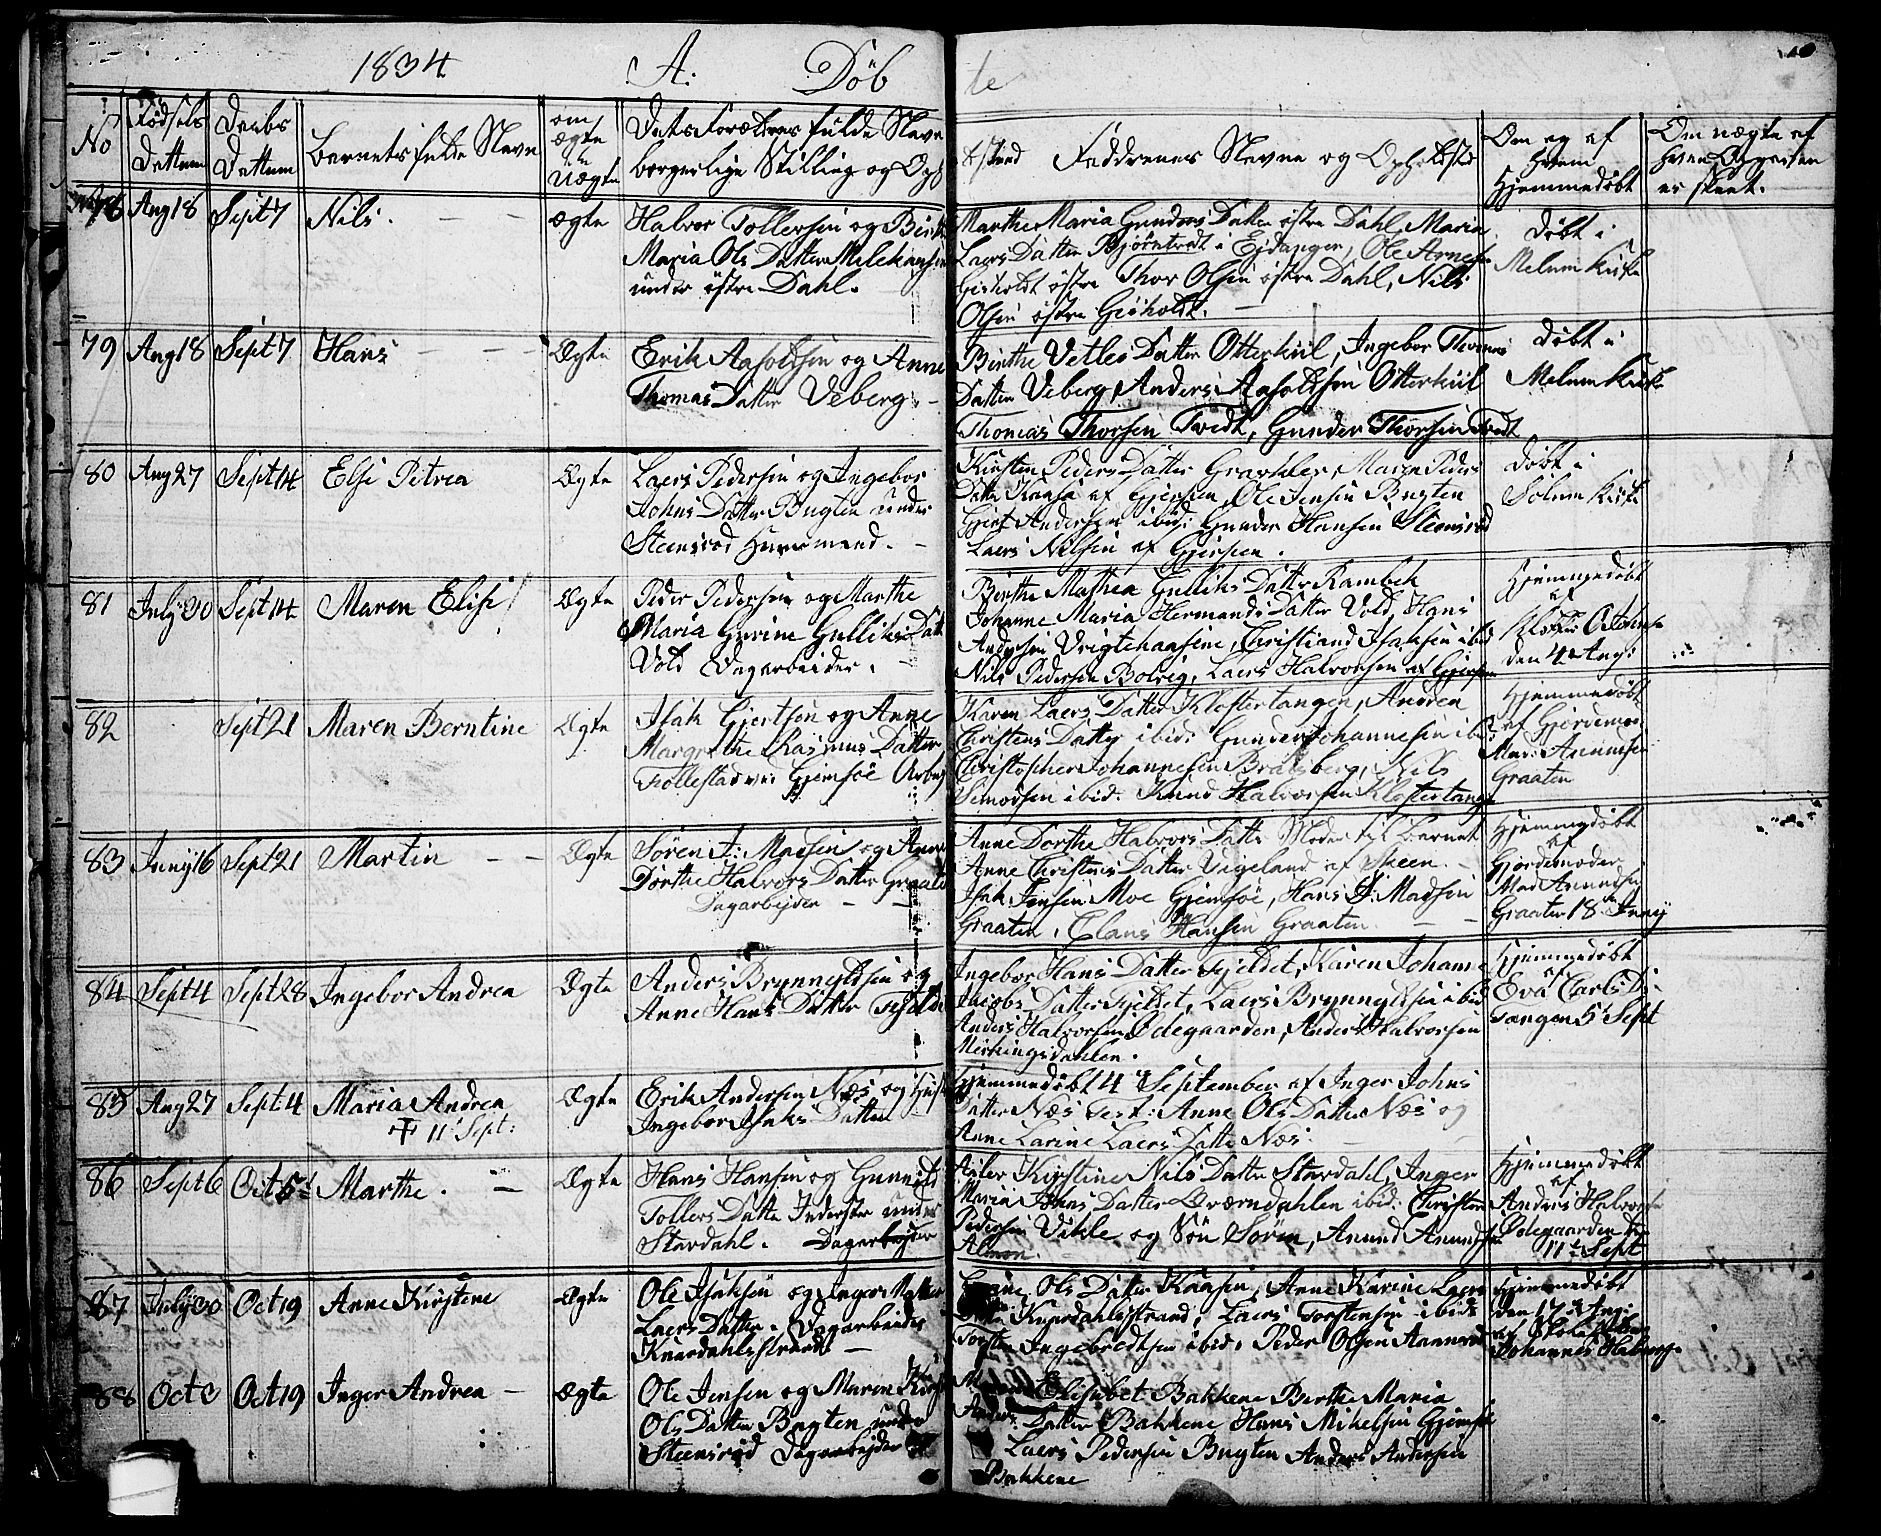 1834 A: Döbte
No
Födsels Dattum
Daabs Dattum
Barnets fulde Navn
om ægte u ægte
Dets Forældres fulde Navn borgerlige Stilling og Op
Faddrenes Navne og Opholdsted
Om og af hvem Hjemmedöbt
78 Aug 18 Sept 7 Nils. — — ægte
Halvor Tollefsen og Birthe
Maria Ols Datter
under östre Dahl.
Marthe Maria Gunders Datter östre Dahl, Maria
Laers Datter Björntvedt i Ejdanger, Ole Arnesen
Gisholdt östre Thor Olsen östre Dahl, Nils
Olsen östre Gisholdt.
Döbt i
Melum Kirke
79 Aug 18 Sept 7 Hans — — Ægte
Erik Aasoldsen og Anne
Thomas Datter Veberg. —
Birthe Vetles Datter Otterkiil, Ingebor Thomas
Datter Veberg, Anders Aasoldsen Otterkiil
Thomas Thorsen Tvedt, Gunder Thorsen Tvedt
Döbt i
Melum Kirke
80 Aug 27 Sept 14 Elsi Petrea Ægte
Laers Pedersen og Ingebor
Johns Datter Bugten under
Steensrød Huusmand. —
Kirsten Peders Datter Graakler, Maren Peders
Datter af Gjerpen, Ole Jensen Bugten
Gjert Andersen ibid: Gunder Hansen Steensrød
Laers Nilsen af Gjerpen.
Döbt i
Solum Kirke
81 July 30 Sept 14 Maren Elise Ægte
Peder Pedersen og Marthe
Maria Gurine Gulliks Datt
Vold Dagarbeider. —
Birthe Mathea Gulliks Datter Rambek
Johanne Maria Hermands Datter Vold, Hans
Andersen Vrigtehausene, Christiand Isaksen ibid
Nils Pedersen Bolvig, Laers Halvorsen af Gjerpen
Hjemmedöbt
af
den 4 Aug:
82 Sept 21 Maren Berntine Ægte
Isak Gjertsen og Anne
Margrethe Rasmus Datter
Follestad Gjemsöe
Karen Laers Datter Klostertangen, Andrea
Christens Datter ibid: Gunder Johannesen ibid:
Christopher Johannesen Bratsberg, Nils
Simonsen ibid: Knud Halvorsen Klostertange
Hjemmedöbt
af Gjordemo:
Mad: Amundsen
Graaten
83 Juny 16 Sept 21 Martin — — Ægte
Sören A: Madsen og Anne
Dorthe Halvors Datter Graaten
Dagarbejder — —
Anne Dorthe Halvors Datter Moder til Barnet
Anne Christens Datter Vageland af Skeen. —
Isak Jensen Moe Gjemsöe, Hans J: Madsen
Graaten, Claus Hansen Graaten. —
Hjemmedöbt
af
Gjordemoder
Mad Amundsen
Graaten 18 Juny
84 Sept 4 Sept 28 Ingebor Andrea Ægte
Anders Brynnyldsen og
Anne Hans Datter Fjeldet
Ingebor Hans Datter Fjeldet, Karen Johanne
Jacobs Datter Fjeldet, Laers Brynnyldsen ibid
Anders Halvorsen Ødegaarden, Anders Halvorsen
Merkingsdahlen.
Hjemmedöbt
af
Eva Carls D:
Tangen 5 Sept
85 Aug 27 Sept 4 Maria Andrea Ægte
+ 11 Sept:
Erik Andersen Næs og Hust
Ingebor Isaks Datter
Hjemmedöbt 4 September af Inger Johns
Datter Næs Test: Anne Ols Datter Næs og
Anne Larine Laers Datter Næs. —
86 Sept 6 Oct 5 Marthe. — Ægte
Hans Hansen og Gunnild
Tollefs Datter Inderster under
Stardahl. Dagarbejder
Kirstine Nils Datter Stardahl, Inger
Maria Johns Datter Qværndahlen ibid: Christen
Pedersen Vible og Sön Sören, Amund Amundsen
Almon.
Hjemmedöbt
af
Anders Halvorsen
Ødegaarden den
11 Sept
87 July 30 Oct 19 Anne Kirstene Ægte
Ole Isaksen og Inger
Laers Datter. Dagarbeider
Knardahlsstrand —
Ols Datter Kaasen, Anne Karine Laers
Knardahlsstrand, Laers Torstensen ibid:
Torsten Ingebredtsen ibid: Peder Olsen Aamodt
Hjemmedöbt
den 17 Aug:
af Skolel
Johannes
88 Oct 3 Oct 19 Inger Andrea — Ægte
Ole Jensen og Maren
Ols Datter Bugten under
Steensröd Dagarbejder
Elisabet Bakkene Berthe Maria
Anders Datter Bakkene Hans Mikelsen Gjemsöe
Laers Pedersen Bugten Anders Andersen
Bakkene